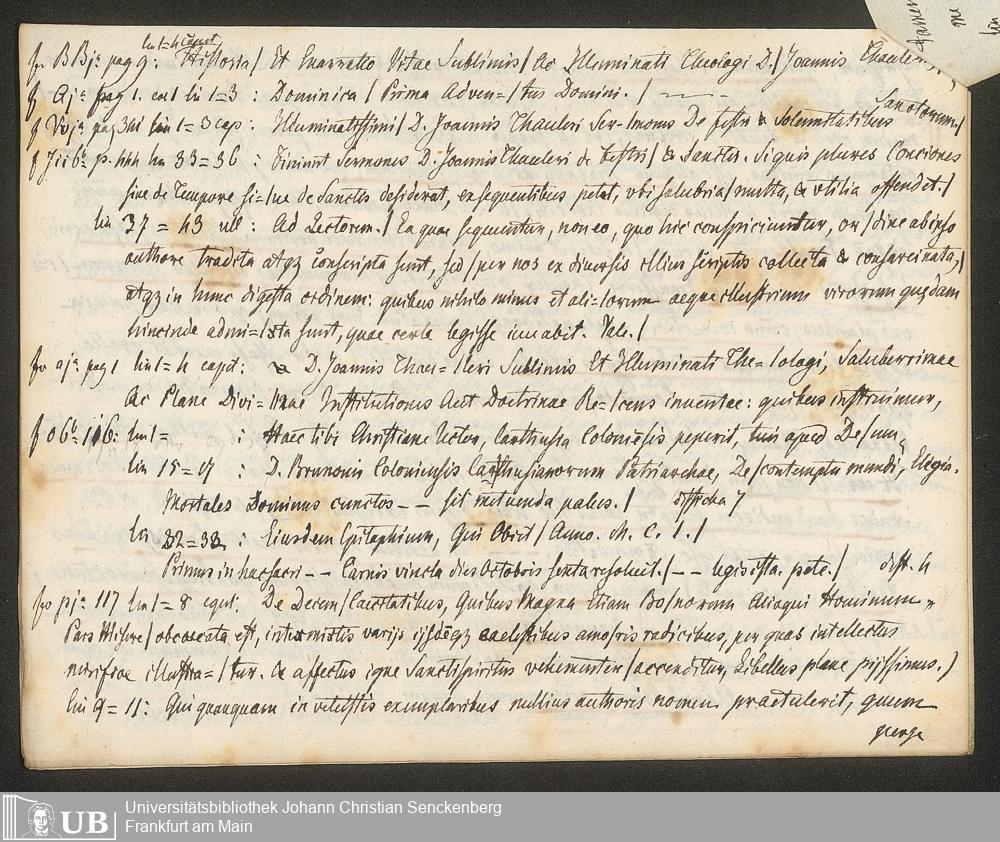 lin 1=4 capit
fo BBjª pag 9: Historia/ Et Enarratio Vitae Sublimis/ Ac Illuminati Theologi D./ Joannis Thauleri.
f Ajª pag 1. col 1 lin 1=3 : Dominica / Prima Adven=/tus Domini. /
f Vvjª pag 341 lin 1=3 cap: Illuminatissimi/ D. Joannis Thauleri Ser-/mones De festis & Solemnitatibus Sanctorum./
f p. lin 33=36 : Finiunt Sermones D. Joannis Thauleri de Festis/ & Sanctis. Siquis plures Conciones
siue de Tempore si=/ue de Sanctis desiderat, ex sequentibus petat, vbi salubria/ multa, & vtilia offendet./
lin 37 = 43 : Ad Lectorem./ Ea quae sequuntur, non eo, quo hic conspiciuntur, or/dine ab ipso
authore tradita atqz conscripta sunt, sed/ per nos ex diuersis illius scriptis collecta & consarcinata,/
atqz in hunc digesta ordinem: quibus nihilo minus et ali=/orum aeque illustrium virorum quędam
hincinde admi=/xta sunt, quae certe legisse iuuabit. Vale./
fo ajª pag 1 lin 1=4 capit: D. Joannis Thau=/leri Sublimis Et Illuminati The=/ologi, Saluberrimae
Ac Plane Divi=/nae Institutiones Aut Doctrinae Re=/cens inuentae: quibus instruimur,
f o 6ᵇ 116: lin 1= : Haec tibi Christiane lector, Carthusia Coloniēsis peperit,
lin 15=17 : D. Brunonis Coloniensis Carthusianorum Patriarchae, De/contemptu mundi, Elegia.
Mortales Dominus cunctos -- sit metuenda palus. / disticha 7
lin 32=33 : Eiusdem Epitaphium, Qui Obiit/ Anno. M. C. I./
Primus in hac sacri -- Carnis vincla dies Octobris sexta resoluit./ -- legis ista. pete./ dist. 4
fo pjª 117 lin 1=8 capit: De Decem/ Caecitatibus, Quibus Magna Etiam Bo/norum Alioqui Hominum
Pars Misere/ obcoecata est, intermistis varijs ijsdēqz caelestibus amoris radicibus, per quas intellectus
mirifice illustra=/tur. & affectus igne Sancti spiritus vehementer/ accenditur, Libellus plane pijssimus./
lin 9=11: Qui quanquam in vetustis exemplaribus nullius authoris nomen praetulerit, quum
Universitätsbibliothek Johann Christian Senckenberg
UB Frankfurt am Main